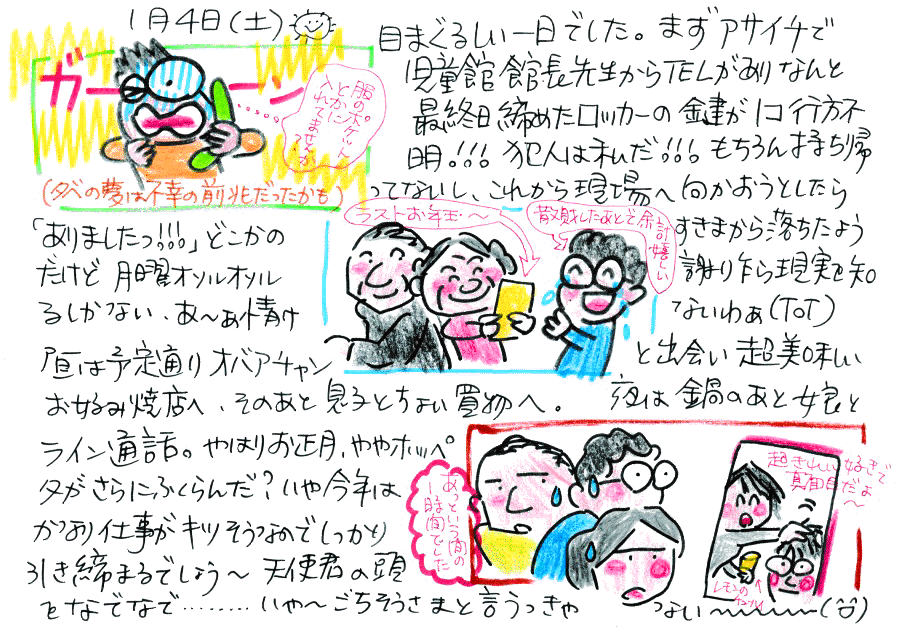 1月4日(土)
目まぐるしい一日でした。まずアサイチで
児童館館長先生からTELがありなんと
最終日締めたロッカーの鍵が1コ行方不
明!!!犯人は私だ!!!もちろん持ち帰
ってないし、これから現場へ向かおうとしたら
ガーーン
服のポケットとかに入れてませんか
(夕べの夢は不幸の前兆だったかも)
「ありましたっ!!!」どこかの
すきまから落ちたよう
だけど月曜オソルオソル
謝り乍ら現実を知
るしかない、あ〜ぁ情け
ないわぁ(ToT)
ラストお年玉〜
散財したあとで余計嬉しい
昼は予定通りオバアチャン
と出会い超美味い
お好み焼店へ、そのあと息子とちょい買物へ。夜は鍋のあと娘と
ライン通話。やはりお正月、ややホッペ
タがさらにふくらんだ?いや今年は
かなり仕事がキツそうなのでしっかり
引き締まるでしょう〜天使君の頭
をなでなで………いや〜ごちそうさまと言うっきゃ
ない〜〜〜〜(^^)
あっという間の1時間でした
超きれい好きで真面目だよ〜
レモンの